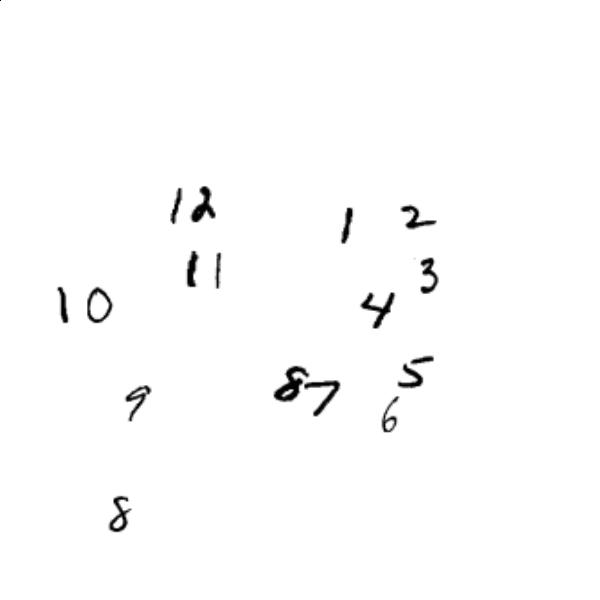 12 1 2
11 3
10 4
9 8 7 5
6
8